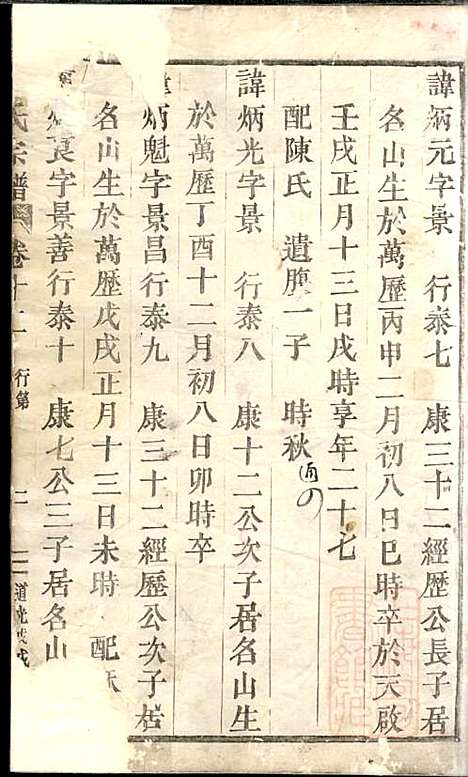 諱炳元字景　行泰七　康三十二經歷公長子居
名山生於萬歷丙申二月初八日巳時卒於天啟
壬戌正月十三日戌時享年二十七
配陳氏　遺腹一子　時秋
諱炳光字景　行泰八　康十二公次子居名山生
於萬歷丁酉十二月初八日卯時卒
諱炳魁字景昌行泰九　康三十二經歷公次子居
名山生於萬歷戊戌正月十三日未時　配
良字景善行泰十　康七公三子居名山
氏宗譜　卷十二　行第　道光戊戌